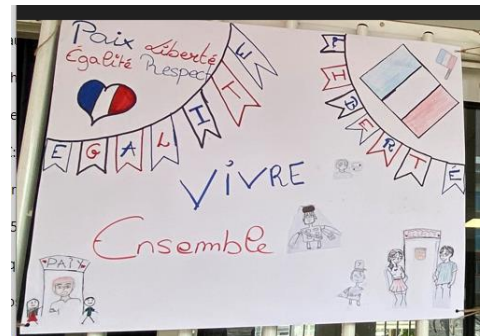 Paix Liberté
Égalité Respect
EGALITE
LIBERTÉ
VIVRE
Ensemble
PATY